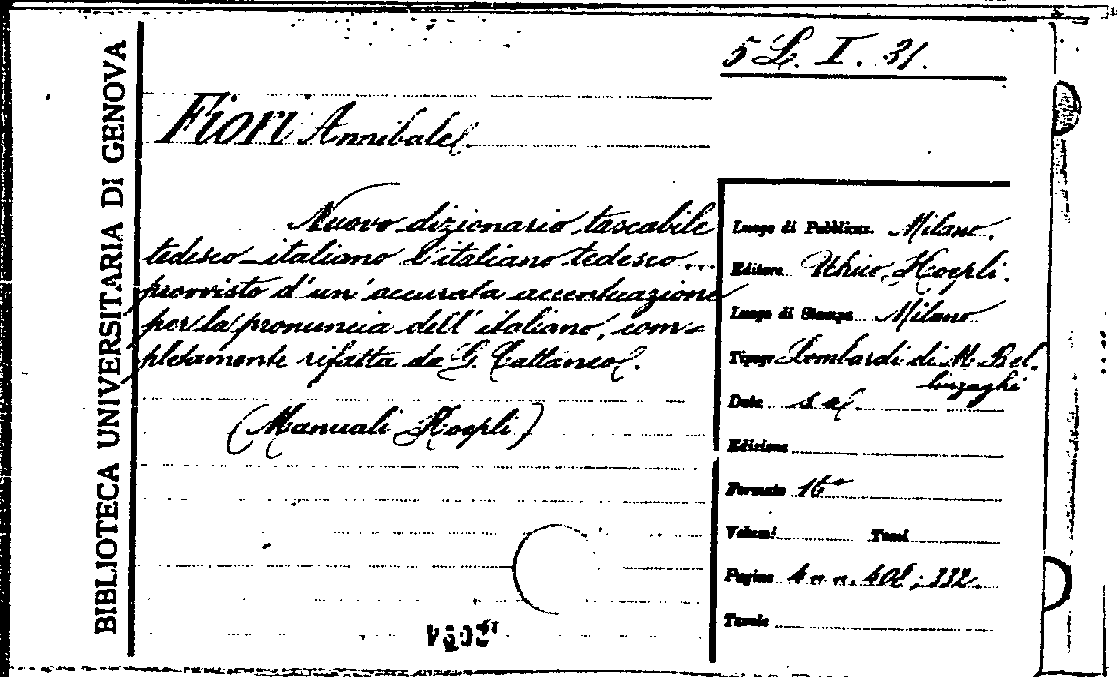 BIBLIOTECA UNIVERSITARIA DI GENOVA
5 L. I. 31.
Fiori Annibale
Nuovo dizionario tascabile
tedesco-italiano e italiano tedesco...
provvisto d'un'accurata accentuazione
per la pronuncia dell'italiano, com-
pletamente rifatta da G. Cattaneo.
(Manuali Hoepli)
Luogo di Pubblicaz. Milano.
Editore Ulrico Hoepli.
Luogo di Stampa Milano
Tipogr. Lombardi di M. Bel-
linzaghi
Data s.a.
Edizione
Formato 16°
Volumi Tomi
Pagine 4 n.n. 408; 332.
Tavole